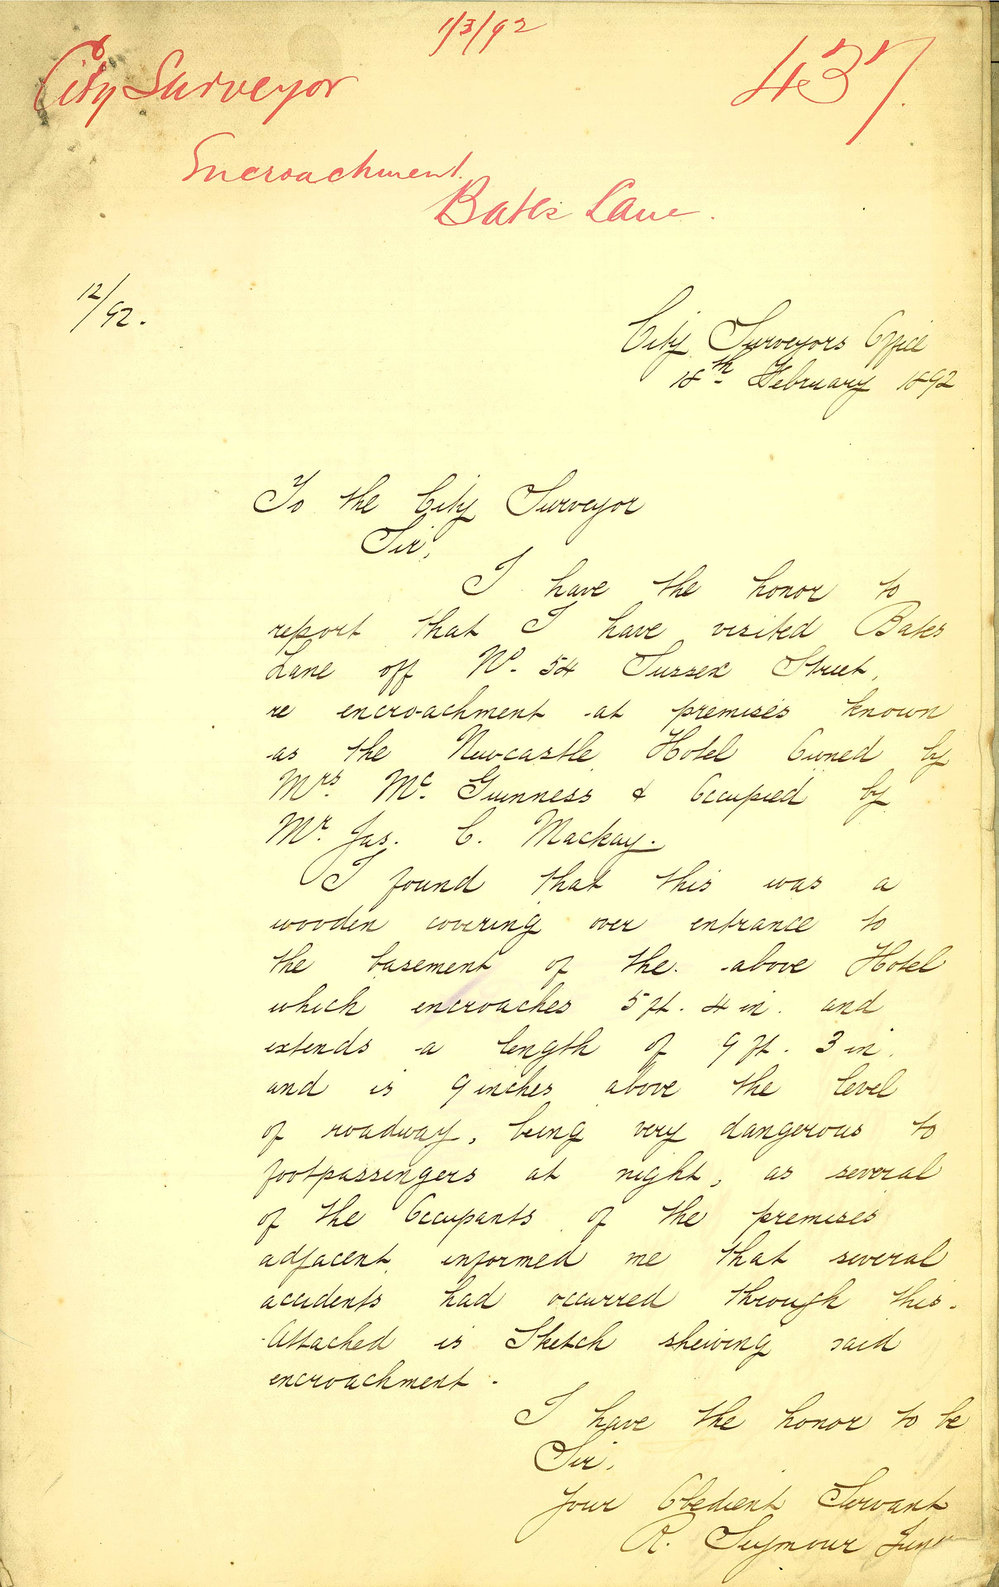 1/3/92
City Surveyor
437.
Encroachment.
Bates Lane.
12/92.
City Surveyors Office
18th February 1892
To the City Surveyor
Sir,
I have the honor to
report that I have visited Bates
Lane off No. 54 Sussex Street,
re encroachment at premises known
as the Newcastle Hotel Owned by
Mrs. Mc. Guinness & Occupied by
Mr. Jas. C. Mackay.
I found that this was a
wooden covering over entrance to
the basement of the above Hotel
which encroaches 5 ft. 4 in. and
extends a length of 9 ft. 3 in.
and is 9 inches above the level
of roadway, being very dangerous to
footpassengers at night, as several
of the Occupants of the premises
adjacent informed me that several
accidents had occurred through this.
Attached is Sketch shewing said
encroachment.
I have the honor to be
Sir,
Your Obedient Servant
R. Seymour Junr